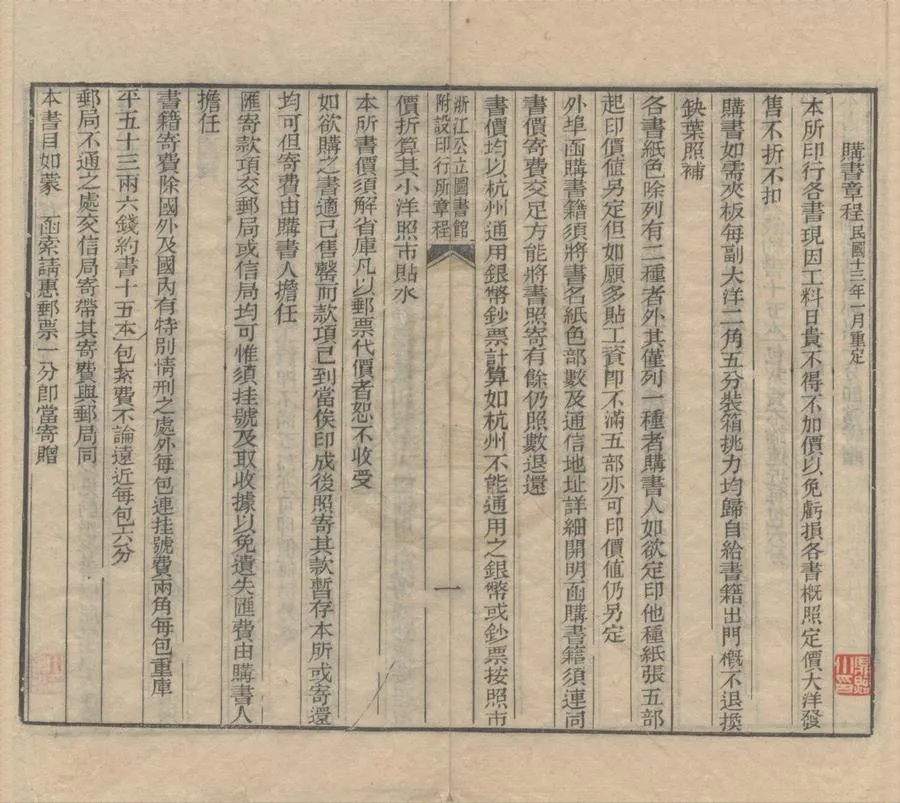 購書章程民國十三年一月重定
本所印行各書現因工料日貴不得不加價以免虧損各書槪照定價大洋發
售不折不扣
購書如需夾板每副大洋二角五分裝箱挑力均歸自給書籍出門槪不退換
缺葉照補
各書紙色除列有二種者外其僅列一種者購書人如欲定印他種紙張五部
起印價值另定但如願多貼工資卽不滿五部亦可印價值仍另定
外埠函購書籍須將書名紙色部數及通信地址詳細開明函購書籍須連同
書價寄費交足方能將書照寄有餘仍照數退還
書價均以杭州通用銀幣鈔票計算如杭州不能通用之銀幣或鈔票按照市
浙江公立圖書館
附設印行所章程
一
價折算其小洋照市貼水
本所書價須解省庫凡以郵票代價者恕不收受
如欲購之書適已售罄而款項已到當俟印成後照寄其款暫存本所或寄還
均可但寄費由購書人擔任
匯寄款項交郵局或信局均可惟須挂號及取收據以免遺失匯費由購書人
擔任
書籍寄費除國外及國內有特別情刑之處外每包連挂號費兩角每包重庫
平五十三兩六錢約書十五本包紮費不論遠近每包六分
郵局不通之處交信局寄帶其寄費與郵局同
本書目如蒙 函索請惠郵票一分卽當寄贈